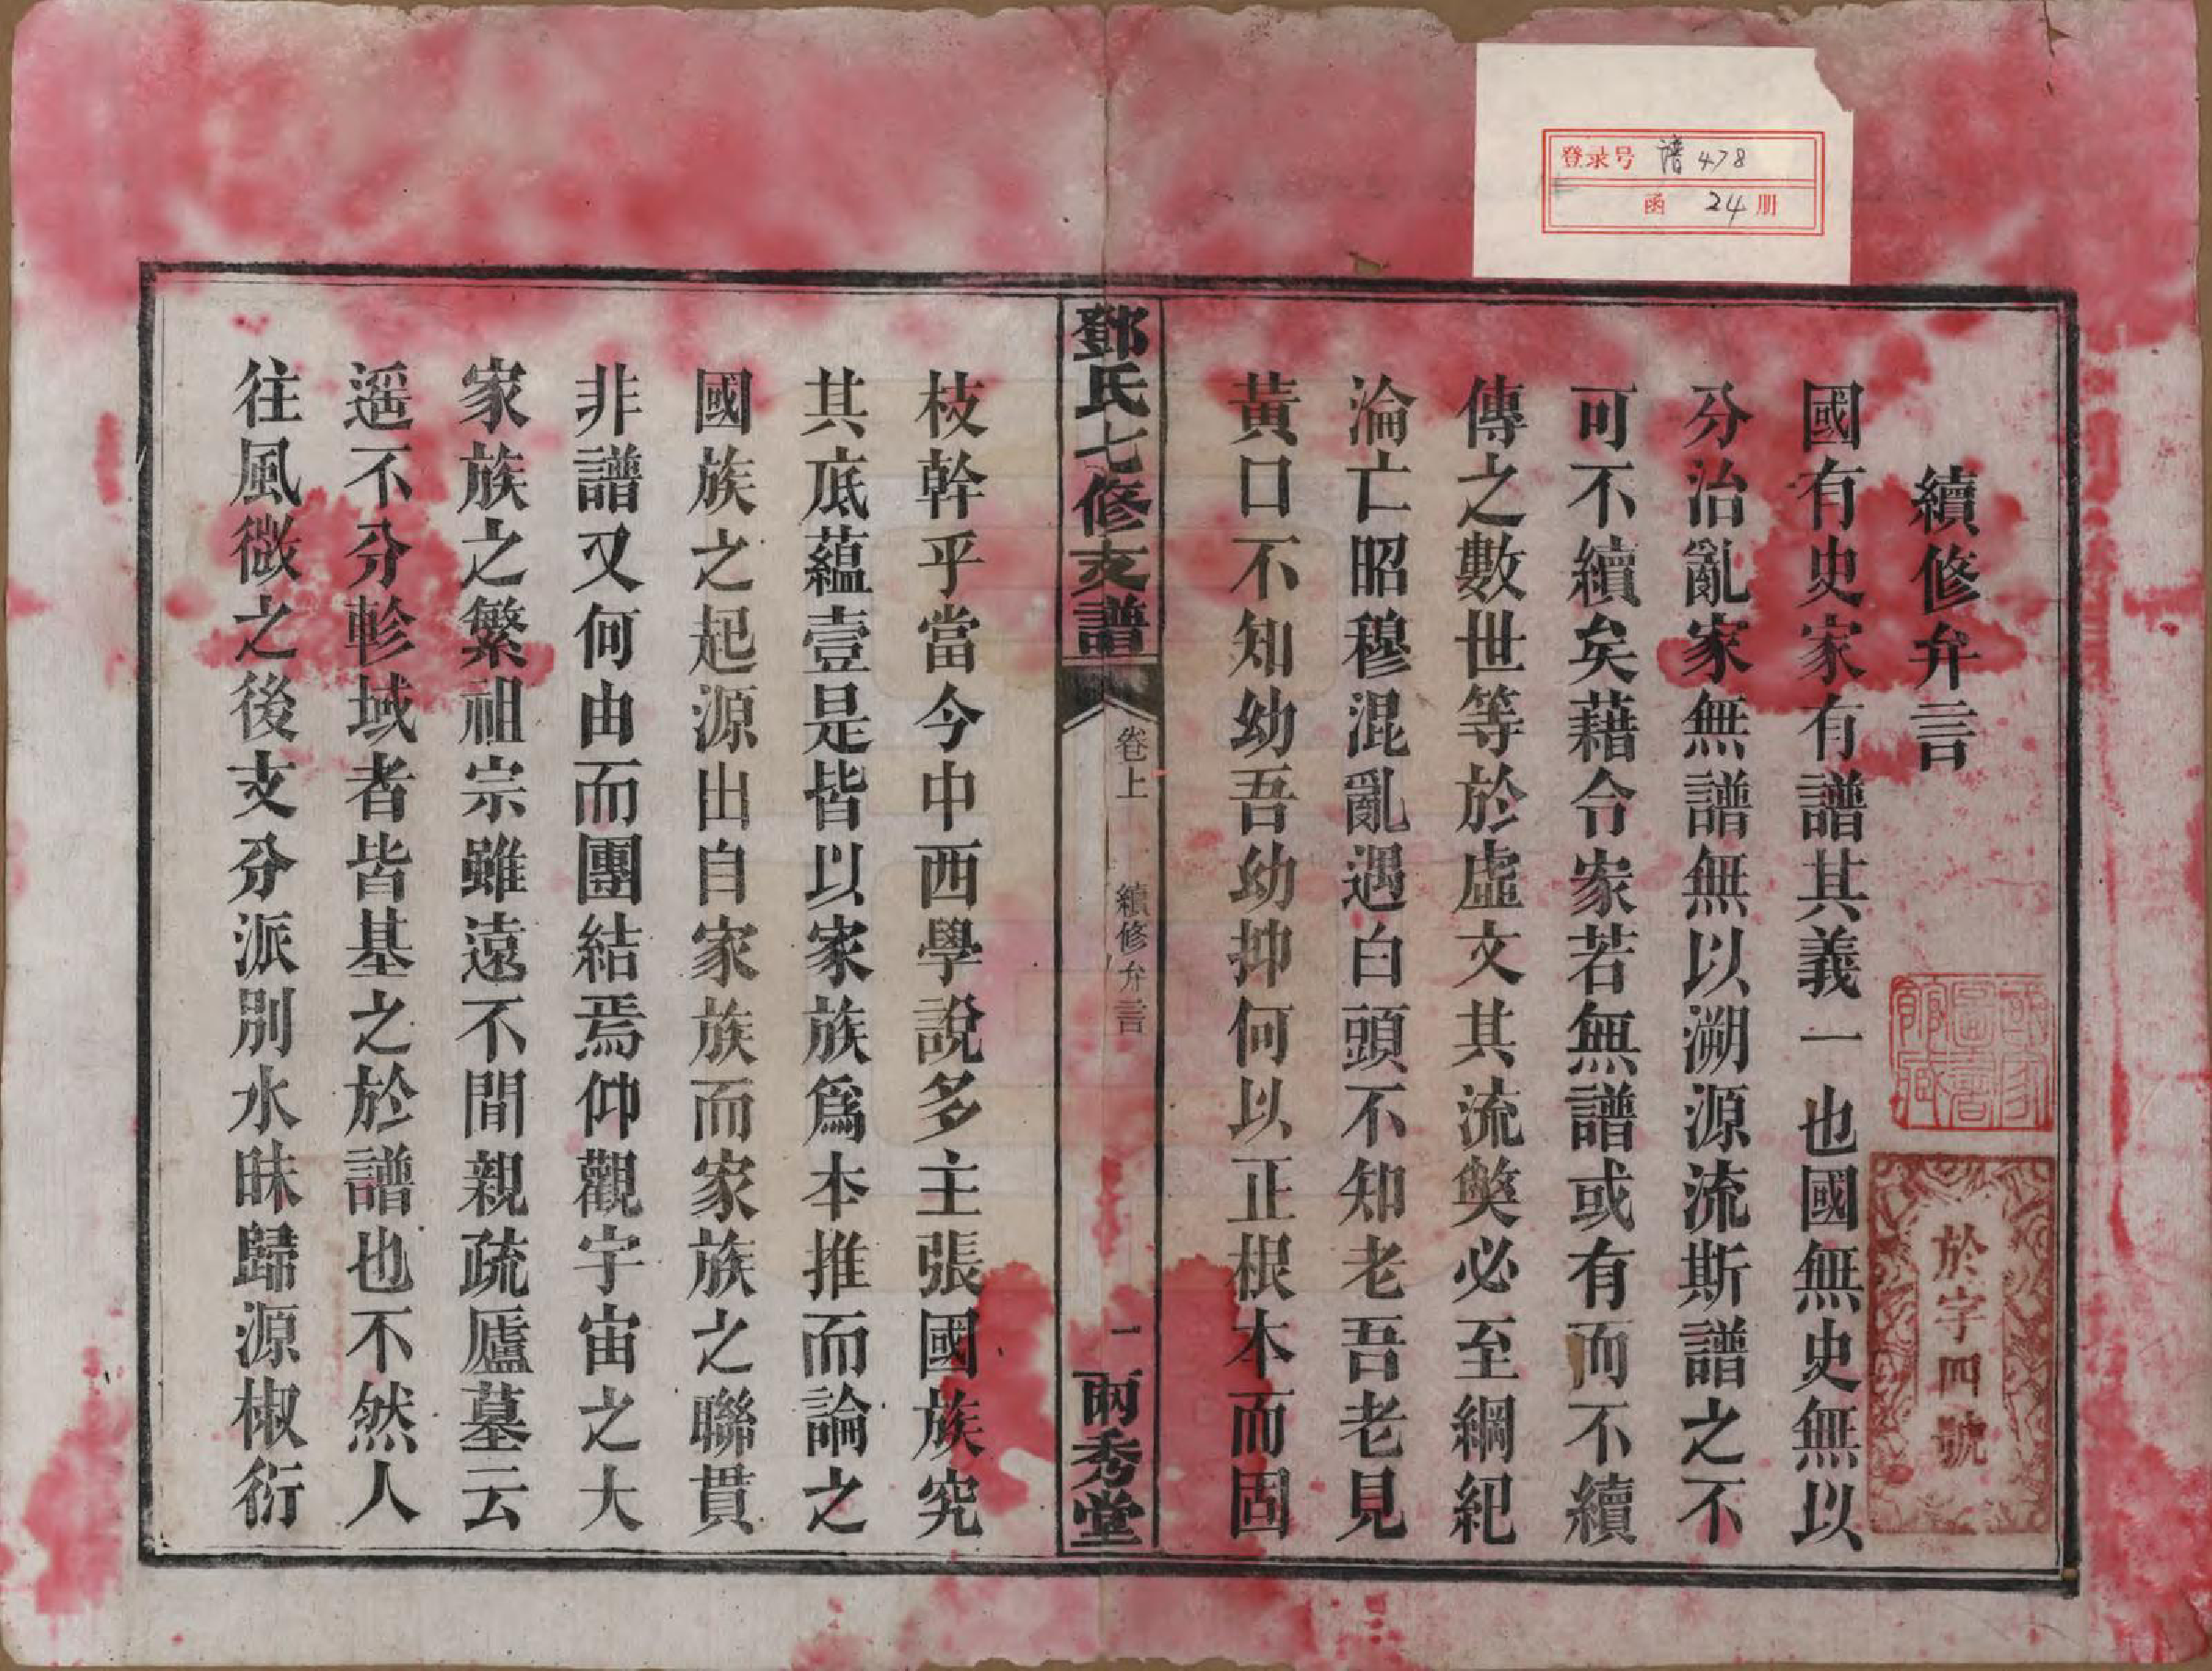 登录号 谱478
函 24 册
續修弁言
國有史家有譜其義一也國無史無以
分治亂家無譜無以溯源流斯譜之不
可不續矣藉令家若無譜或有而不續
傳之數世等於虛文其流獘必至綱紀
淪亡昭穆混亂遇白頭不知老吾老見
黃口不知幼吾幼抑何以正根本而固
鄧氏七修支譜
卷上
續修弁言
一
兩秀堂
枝幹乎當今中西學說多主張國族究
其底蘊壹是皆以家族爲本推而論之
國族之起源出自家族而家族之聯貫
非譜又何由而團結焉仰觀宇宙之大
家族之繁祖宗雖遠不間親疏廬墓云
遥不分畛域者皆基之於譜也不然人
往風微之後支分派別水昧歸源椒衍
國家圖書館藏
於字四號